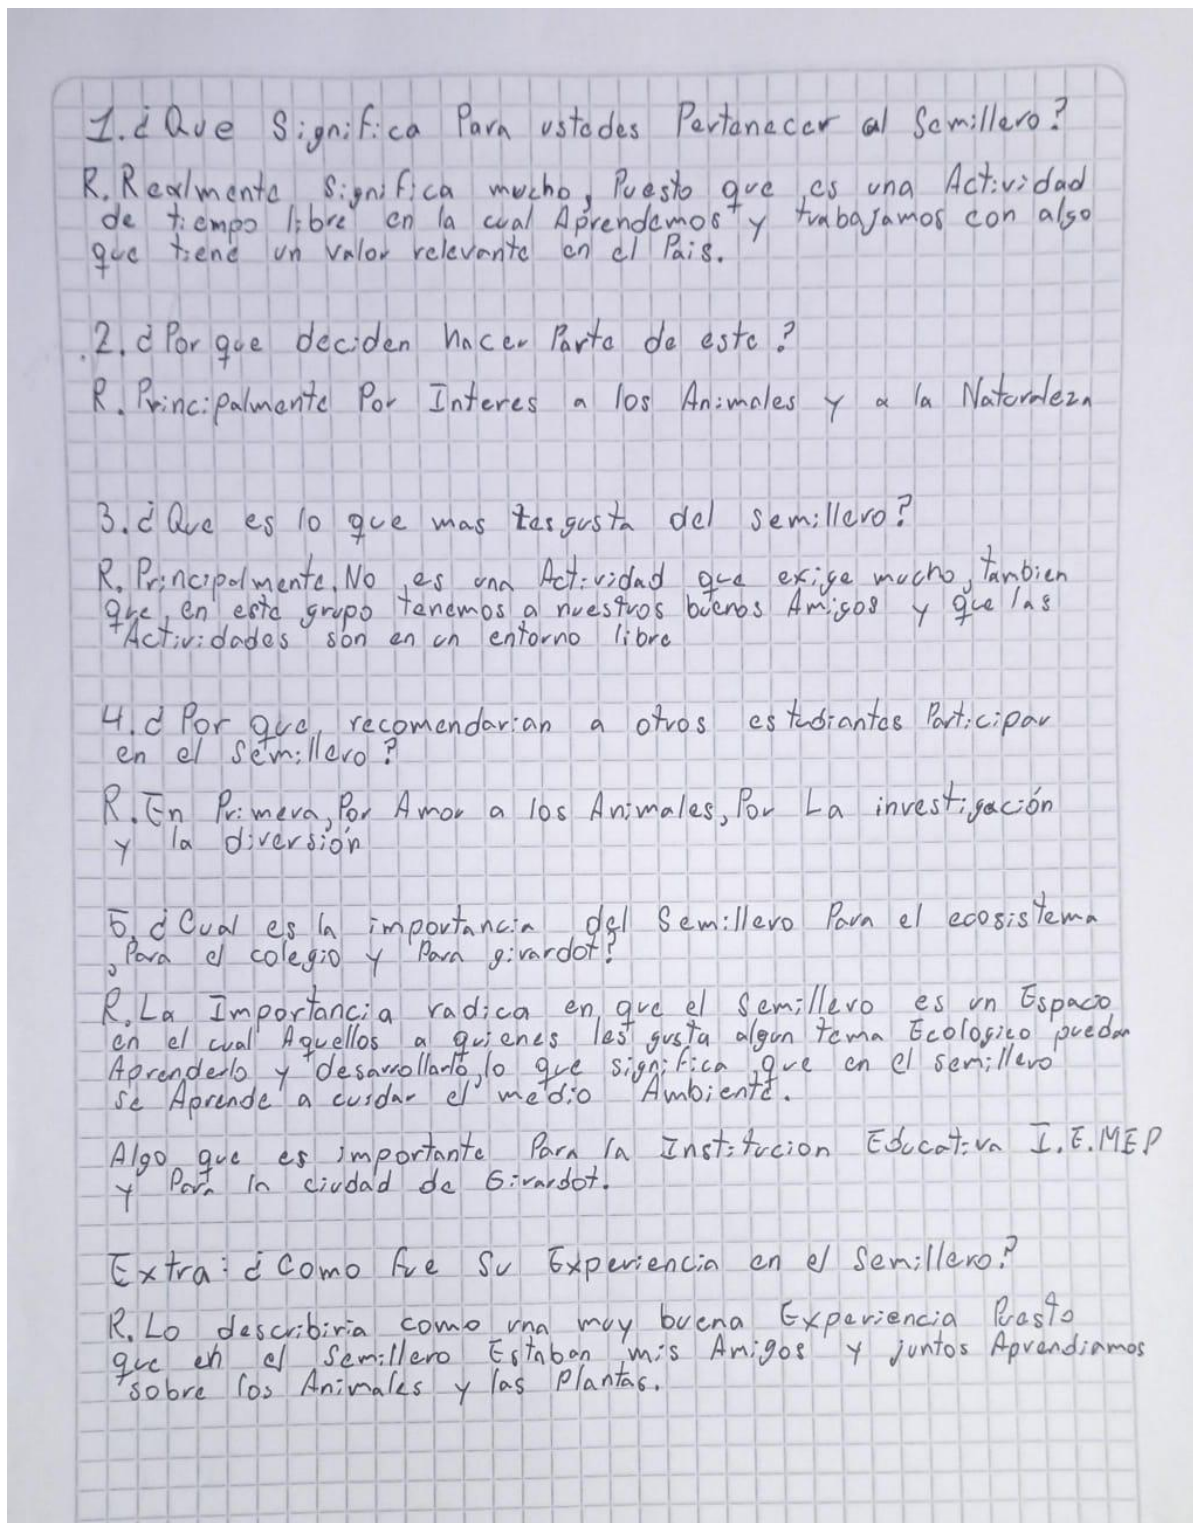 1. ¿Que Significa Para ustedes Pertenecer al Semillero?
R. Realmente Significa mucho, Puesto que es una Actividad
de tiempo libre en la cual Aprendemos y trabajamos con algo
que tiene un valor relevante en el Pais.
2. ¿Por que deciden hacer Parte de este?
R. Principalmente Por Interes a los Animales y a la Naturaleza
3. ¿Que es lo que mas les gusta del semillero?
R. Principalmente, No es una Actividad que exige mucho, tambien
que en este grupo tenemos a nuestros buenos Amigos y que las
Actividades son en un entorno libre
4. ¿Por que recomendarian a otros estudiantes Participar
en el Semillero?
R. En Primera, Por Amor a los Animales, Por La investigación
y la diversión
5. ¿Cual es la importancia del Semillero Para el ecosistema
, Para el colegio y Para girardot?
R. La Importancia radica en que el Semillero es un Espacio
en el cual Aquellos a quienes les gusta algun tema Ecologico puedan
Aprenderlo y desarrollarlo, lo que significa que en el semillero
se Aprende a cuidar el medio Ambiente.
Algo que es importante Para la Institucion Educativa I.E.MEP
y Para la ciudad de Girardot.
Extra: ¿Como fue Su Experiencia en el Semillero?
R. Lo describiria como una muy buena Experiencia Puesto
que en el Semillero Estaban mis Amigos y juntos Aprendiamos
sobre los Animales y las Plantas.